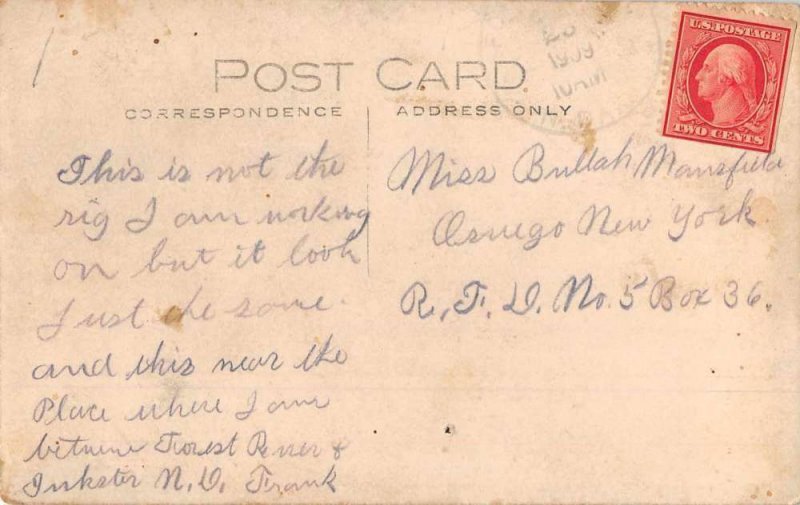 U.S. POSTAGE
TWO CENTS
1909
10 AM
POST CARD
CORRESPONDENCE
ADDRESS ONLY
This is not the
rig I am working
on but it look
Just the same.
and this near the
Place where I am
bitwene Forest River &
Inkster N.D. Frank
Miss Bullah Mansfield
Oswego New York
R.F.D. No. 5 Box 36.